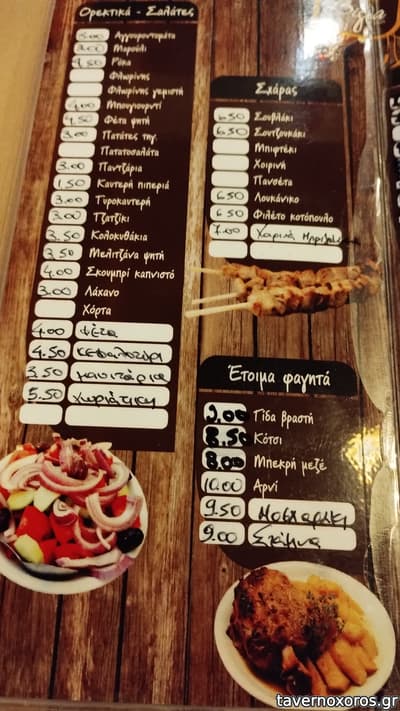 Ορεκτικά - Σαλάτες
5.00 Αγγουροντομάτα
3.00 Μαρούλι
4.50 Ρόκα
Φλωρίνης
Φλωρίνης γεμιστή
4.00 Μπουγιουρντί
4.50 Φέτα ψητή
3.00 Πατάτες τηγ.
Πατατοσαλάτα
3.00 Παντζάρια
1.50 Καυτερή πιπεριά
3.00 Τυροκαυτερή
3.00 Τζατζίκι
3.50 Κολοκυθάκια
3.50 Μελιτζάνα ψητή
4.00 Σκουμπρί καπνιστό
3.00 Λάχανο
Χόρτα
4.00 Φέτα
4.50 Κεφαλοτύρι
3.50 μανιτάρια
5.50 χωριάτικη
Σχάρας
6.50 Σουβλάκι
6.50 Σουτζουκάκι
Μπιφτέκι
Χοιρινή
Πανσέτα
6.50 Λουκάνικο
6.50 Φιλέτο κοτόπουλο
7.00
Έτοιμα φαγητά
9.00 Γίδα βραστή
8.50 Κότσι
8.00 Μπεκρή μεζέ
10.00 Αρνί
9.50 Μοσχαράκι
9.00 Στάμνα
tavernoxoros.gr